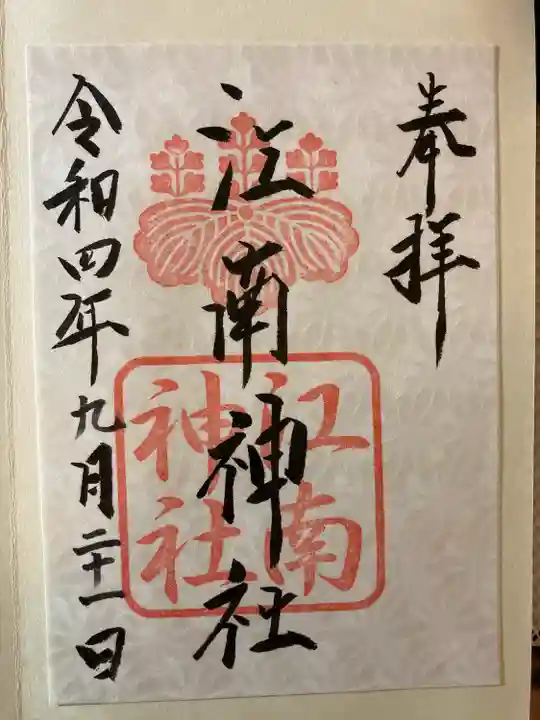 奉拝
江南神社
江南神社
令和四年九月二十一日